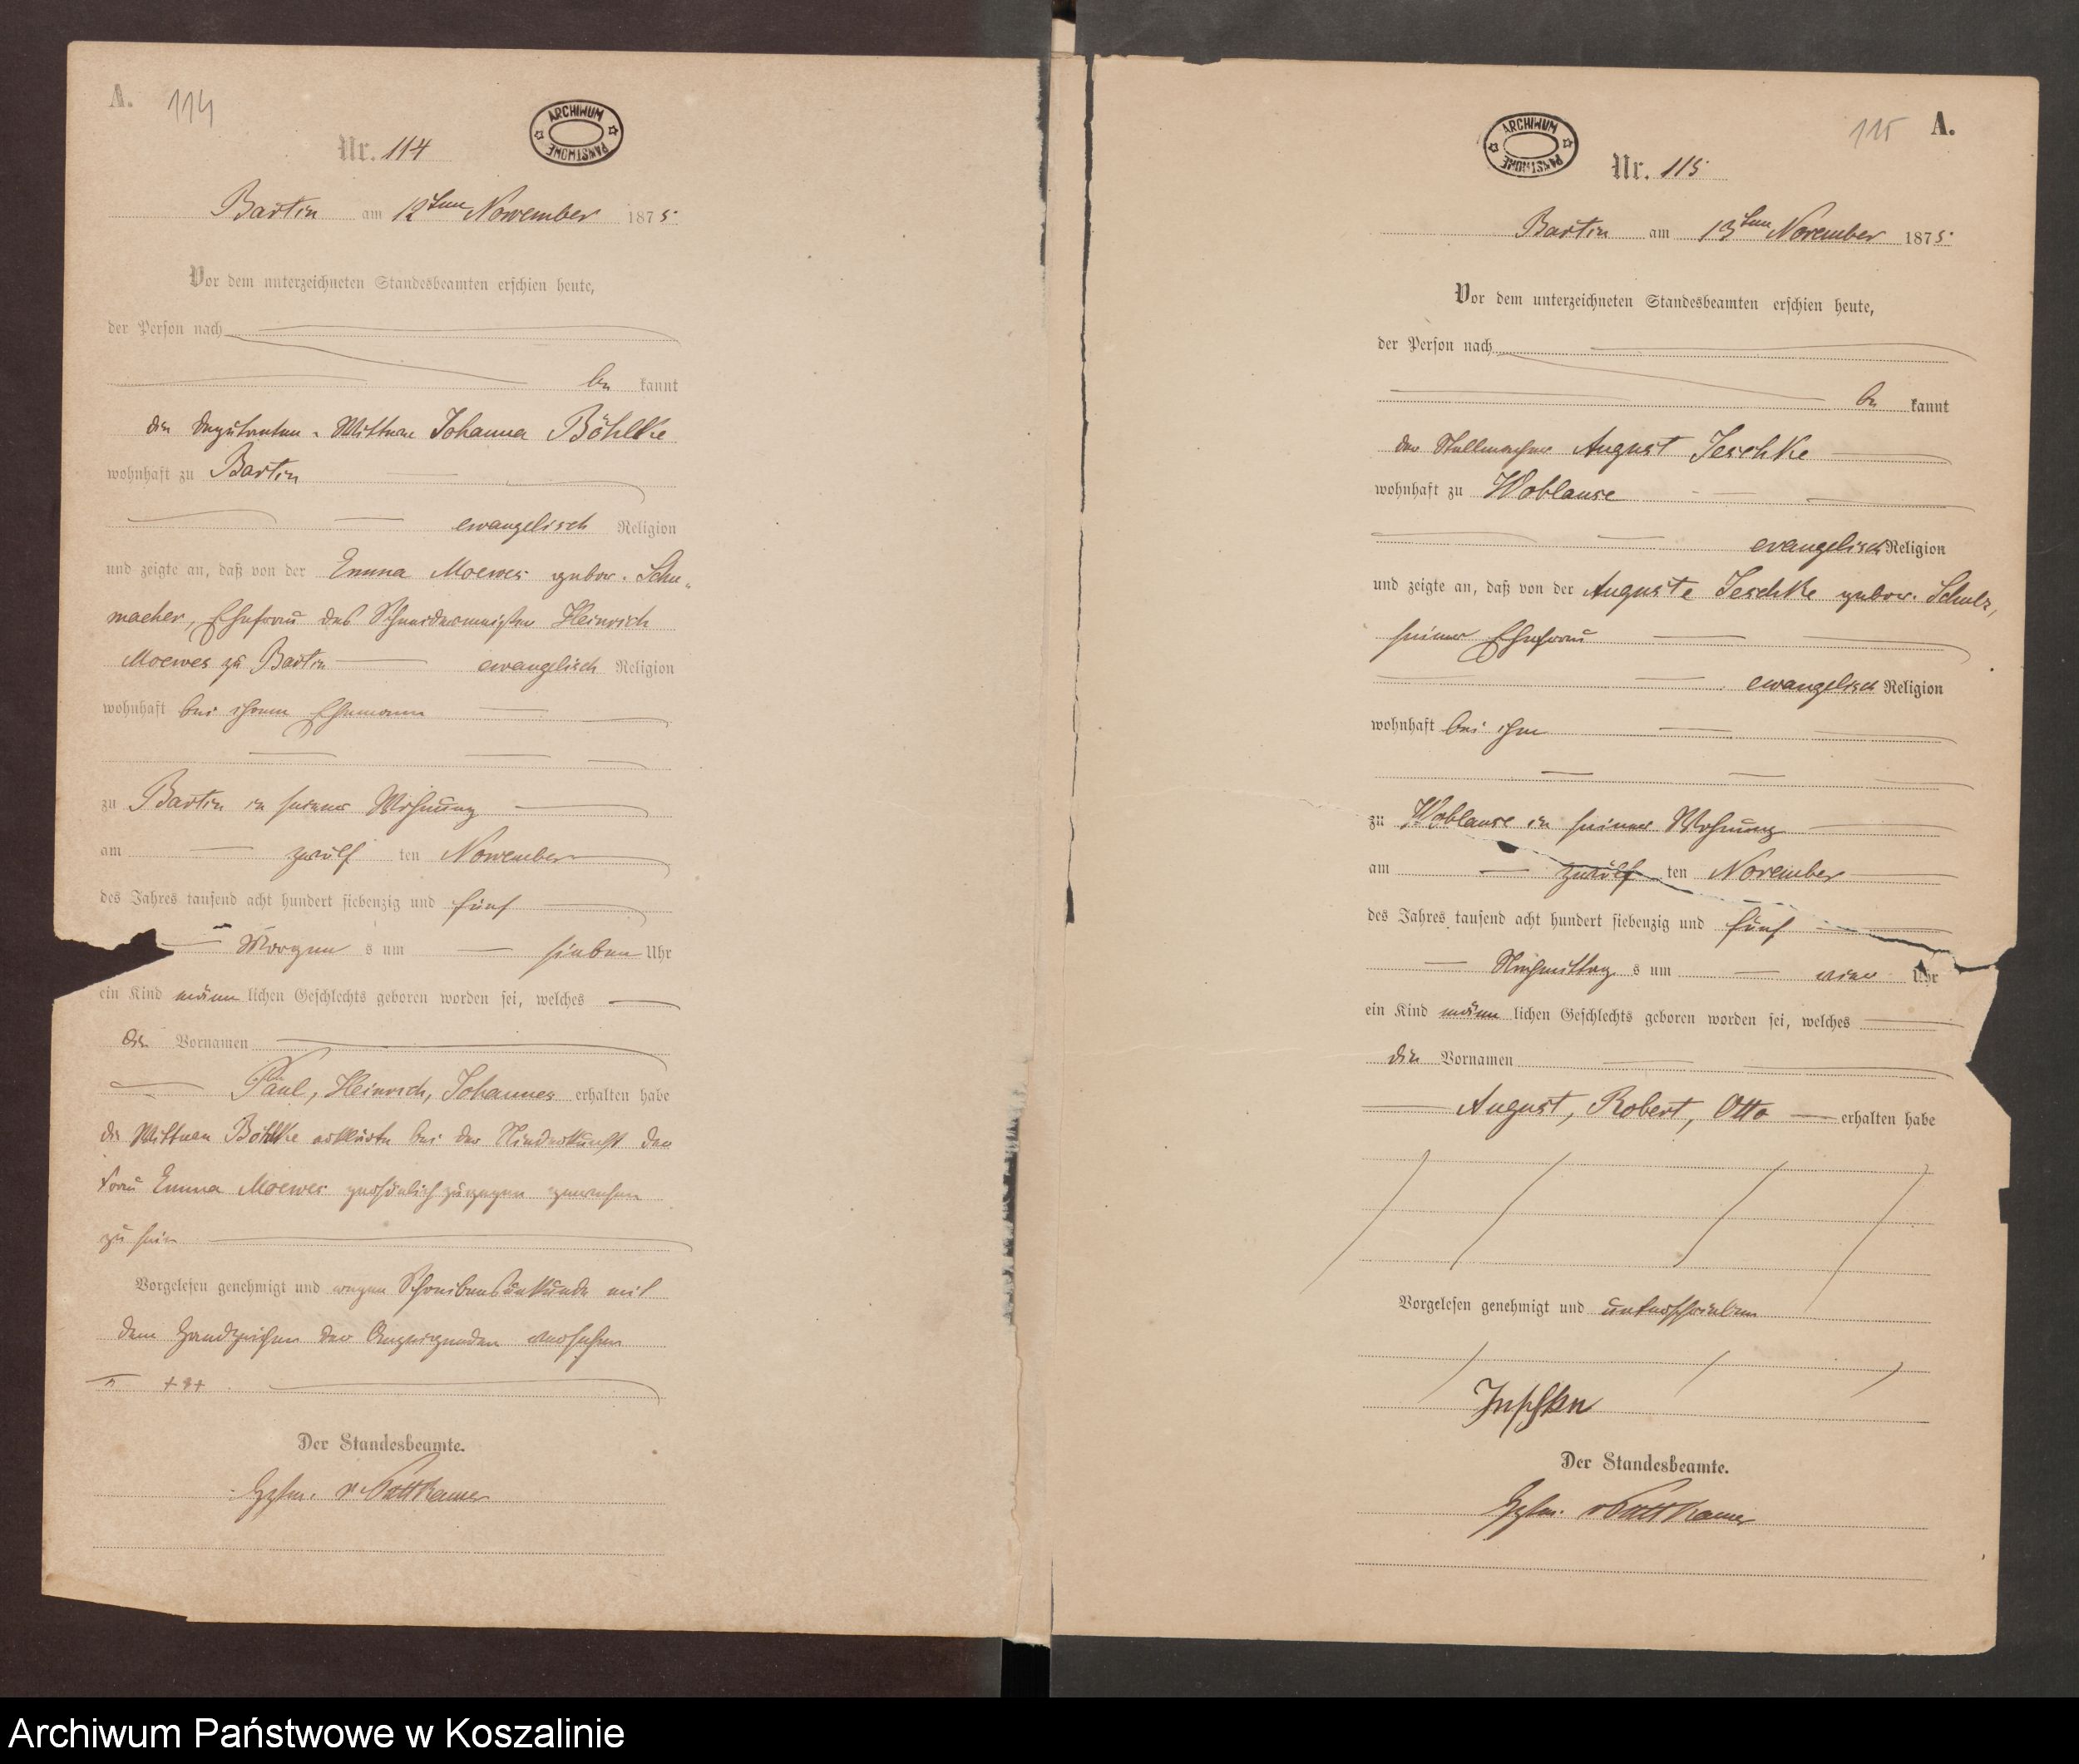 A. 114
ARCHIWUM PAŃSTWOWE
Nr. 114
Bartin am 12ten November 1875
Vor dem unterzeichneten Standesbeamten erschien heute,
der Person nach
be kannt
die Deputanten-Wittwe Johanna Böhlke
wohnhaft zu Bartin
evangelisch Religion
und zeigte an, daß von der Emma Moewes gebor. Schu-
macher, Ehefrau des Schneidermeister Heinrich
Moewes zu Bartin evangelisch Religion
wohnhaft bei ihrem Ehemann
zu Bartin in seiner Wohnung
am zwölf ten November
des Jahres tausend acht hundert siebenzig und fünf
Morgen s um sieben Uhr
ein Kind männ lichen Geschlechts geboren worden sei, welches
die Vornamen
Paul, Heinrich, Johannes erhalten habe
die Wittwe Böhlke erklärte bei der Niederkunft der
Frau Emma Moewes persönlich zugegen gewesen
zu sein
Vorgelesen genehmigt und wegen Schreibensunkunde mit
dem Handzeichen der Anzeigenden versehen
+++
Der Standesbeamte.
v Puttkamer
115 A.
ARCHIWUM PAŃSTWOWE
Nr. 115
Bartin am 13ten November 1875
Vor dem unterzeichneten Standesbeamten erschien heute,
der Person nach
be kannt
der Stellmacher August Jeschke
wohnhaft zu Woblanse
evangelisch Religion
und zeigte an, daß von der Auguste Jeschke gebor. Schulz,
seiner Ehefrau
evangelisch Religion
wohnhaft bei ihm
zu Woblanse in seiner Wohnung
am zwölf ten November
des Jahres tausend acht hundert siebenzig und fünf
Nachmittag s um vier Uhr
ein Kind männ lichen Geschlechts geboren worden sei, welches
die Vornamen
August, Robert, Otto erhalten habe
Vorgelesen genehmigt und unterschrieben
Jeschke
Der Standesbeamte.
v Puttkamer
Archiwum Państwowe w Koszalinie